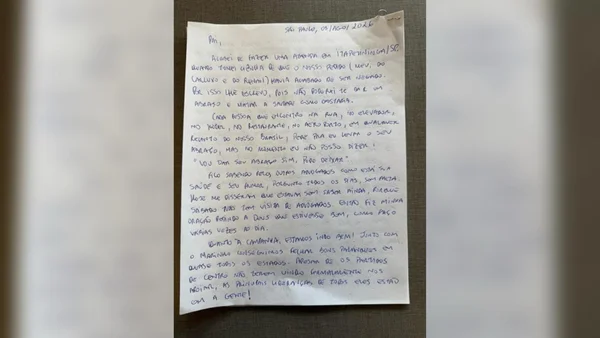 SÃO PAULO, 01/AGO/2026
PAI,
ACABEI DE FAZER UMA AGENDA EM ITAPEMA/SC
QUANDO TOMEI CIÊNCIA DE QUE O NOSSO PEDIDO (MEU, DO
CARLUXO E DO RENAN) HAVIA ACABADO DE SER NEGADO.
POR ISSO LHE ESCREVO, POIS NÃO PODEREI TE DAR UM
ABRAÇO E MATAR A SAUDADE COMO GOSTARIA.
CADA PESSOA QUE ENCONTRO NA RUA, NO ELEVADOR,
NO HOTEL, NO RESTAURANTE, NO AEROPORTO, EM QUALQUER
RECANTO DO NOSSO BRASIL, PEDE PRA EU LEVAR O SEU
ABRAÇO, MAS NO MOMENTO EU NÃO POSSO DIZER:
"VOU DAR SEU ABRAÇO SIM, PODE DEIXAR".
FICO SABENDO PELOS OUTROS ADVOGADOS COMO ESTÁ SUA
SAÚDE E SEU HUMOR, PERGUNTO TODOS OS DIAS, SEM FALTA.
HOJE ME DISSERAM QUE ESTAVAM SEM SABER AINDA, PORQUE
SÁBADO NÃO TEM VISITA DE ADVOGADOS. ENTÃO FIZ MINHA
ORAÇÃO PEDINDO A DEUS QUE ESTIVESSE BEM, COMO FAÇO
VÁRIAS VEZES AO DIA.
QUANTO À CAMPANHA, ESTAMOS INDO BEM! JUNTO COM
O MARINHO CONSEGUIMOS FECHAR BONS PALANQUES EM
QUASE TODOS OS ESTADOS. APESAR DE OS PARTIDOS
DE CENTRO NÃO TEREM VINDO FORMALMENTE NOS
APOIAR, AS PRINCIPAIS LIDERANÇAS DE TODOS ELES ESTÃO
COM A GENTE!